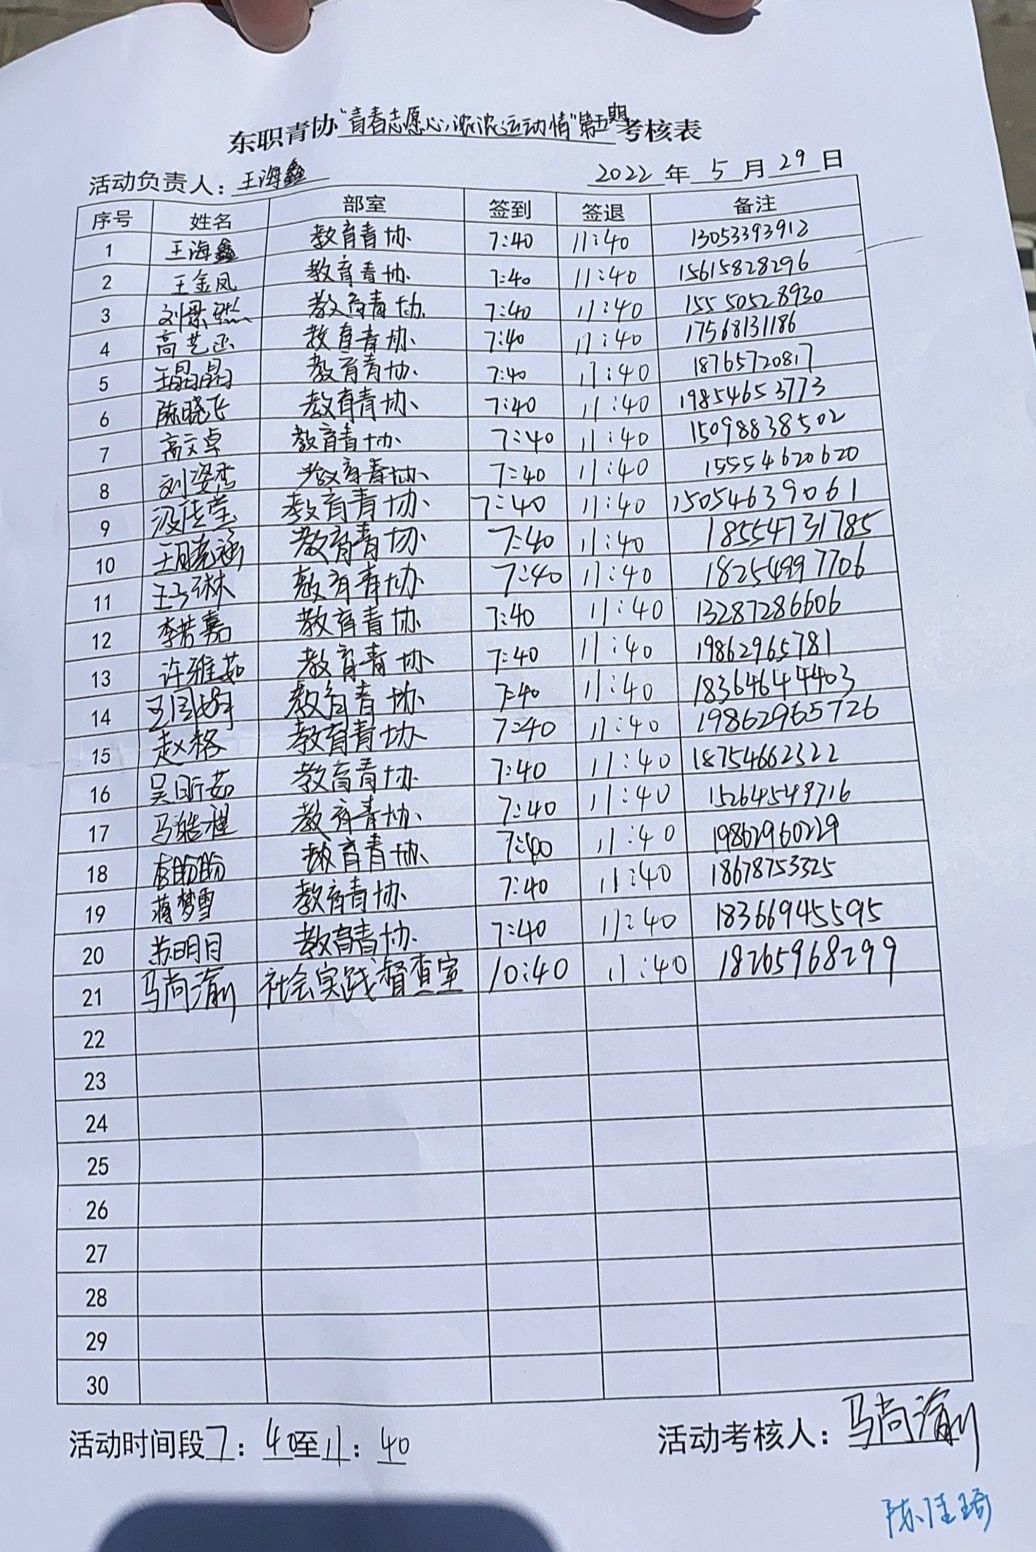 东职青协“青春志愿心,浓浓运动情”第五期考核表
活动负责人：王海鑫 2022年5月29日
序号 姓名 部室 签到 签退 备注
1 王海鑫 教育青协 7:40 11:40 13053393912
2 王金凤 教育青协 7:40 11:40 15615828296
3 刘景然 教育青协 7:40 11:40 15550528930
4 高艺函 教育青协 7:40 11:40 17568131186
5 王晶晶 教育青协 7:40 11:40 18765720817
6 陈晓飞 教育青协 7:40 11:40 19854653773
7 高文卓 教育青协 7:40 11:40 15098838502
8 刘姿杰 教育青协 7:40 11:40 15554620620
9 教育青协 7:40 11:40 15054639061
10 王晓涵 教育青协 7:40 11:40 18554731785
11 教育青协 7:40 11:40 18254997706
12 李若嘉 教育青协 7:40 11:40 13287286606
13 许雅茹 教育青协 7:40 11:40 19862965781
14 教育青协 7:40 11:40 18364644403
15 赵格 教育青协 7:40 11:40 19862965726
16 吴昕茹 教育青协 7:40 11:40 18754662322
17 教育青协 7:40 11:40 15264549716
18 李盼盼 教育青协 7:40 11:40 19862960229
19 蒋梦雪 教育青协 7:40 11:40 18678753325
20 苏明月 教育青协 7:40 11:40 18366945595
21 马尚渝 社会实践督查室 10:40 11:40 18265968299
22
23
24
25
26
27
28
29
30
活动时间段 7：40至11：40 活动考核人：马尚渝
陈佳琦